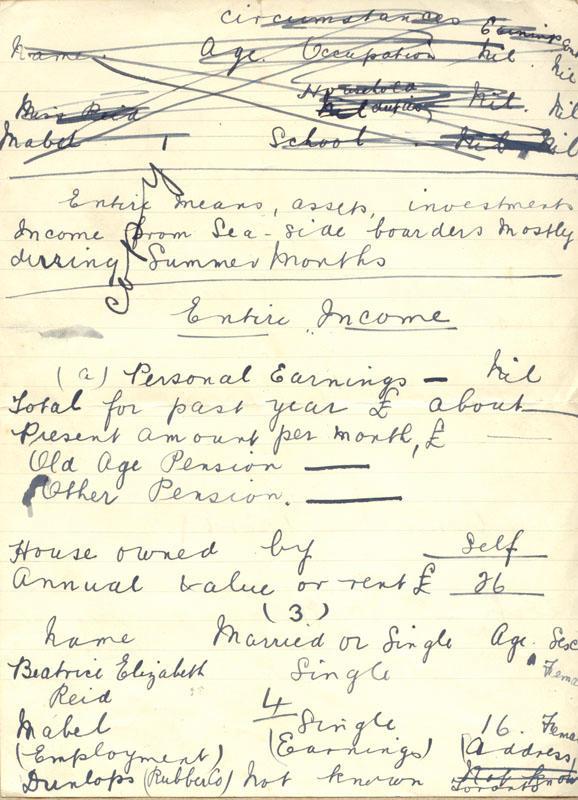 circumstances
Name. Age. Occupation Nil Nil
Miss Reid Nil. Nil
Mabel School Nil Nil
copy
Entire means, assets, investments
Income from Sea-side boarders Mostly
durring Summer Months
Entire Income
(a) Personal Earnings — Nil
Total for past year £ about —
Present amount per month, £ —
Old Age Pension —
Other Pension. —
House owned by Self
Annual value or rent £ 26
(3)
Name Married or Single Age. Sex
Beatrice Elizabeth Single Fema
Reid
4
Mabel Single 16. Fema
(Employment) (Earnings) (Address)
Dunlops (RubberCo) Not known Not know
Toronto